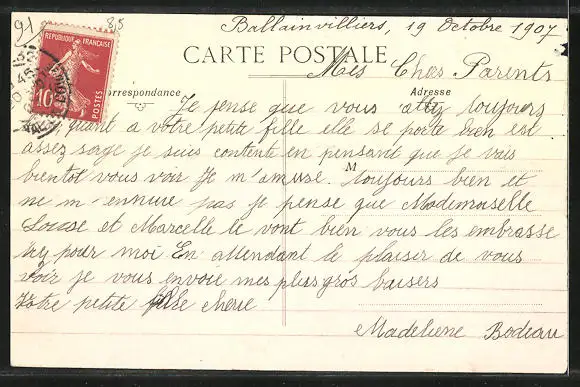 91 85
Ballainvilliers, 19 Octobre 1907
CARTE POSTALE
REPUBLIQUE FRANÇAISE
10
POSTES
Mes Chers Parents
orrespondance Adresse
Je pense que vous allez toujours
quant a votre petite fille elle se porte bien est
assez sage je suis contente en pensant que je vais
bientot vous voir Je m'amuse toujours bien et
M
ne m'ennuie pas je pense que Mademoiselle
Louise et Marcelle le vont bien vous les embrasse
rez pour moi En attendant le plaisir de vous
voir je vous envoie mes plus gros baisers
Votre petite fille cherie
Madeleine Bodeau